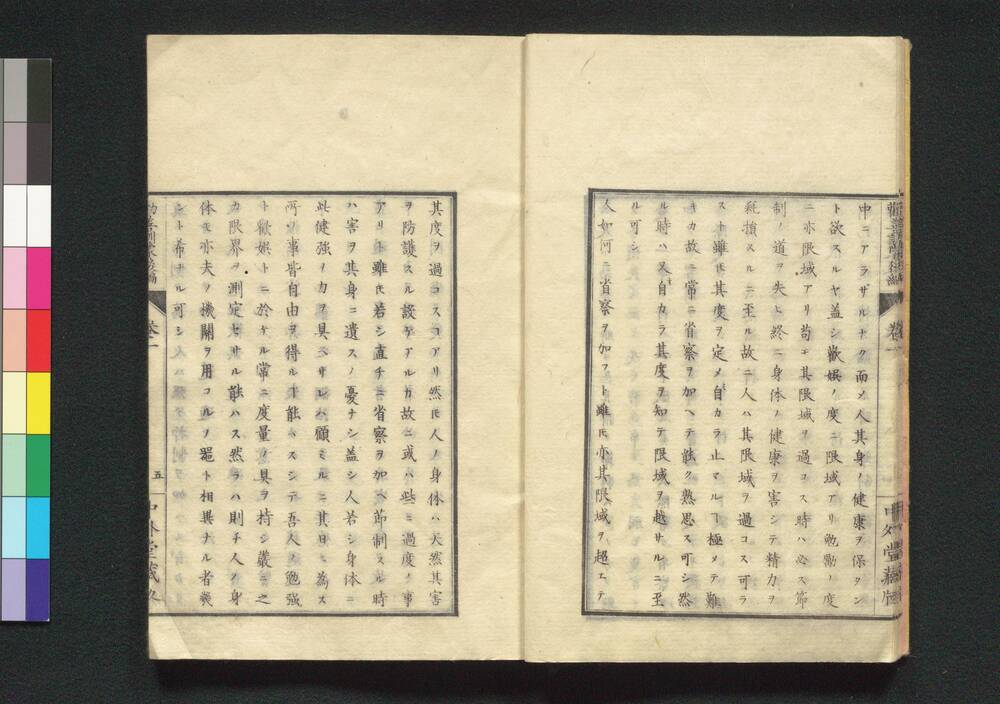 中ニアラザルナク而〆人其身ノ健康ヲ保タン
ト欲スルヤ蓋シ歡娯ノ度ニ限域アリ勉勵ノ度
ニ亦限域アリ苟モ其限域ヲ過コス時ハ必ス節
制ノ道ヲ失ヒ終ニ身体ノ健康ヲ害シテ精力ヲ
耗損スルニ至ル故ニ人ハ其限域ヲ過コス可ラ
スト雖氏其度ヲ定メ自カラ止マルヿ極メテ難
キカ故ニ常ニ省察ヲ加ヘテ能ク熟思ス可シ然
ル時ハ又自カラ其度ヲ知テ限域ヲ越サルニ至
ル可シ
人如何ニ省察ヲ加フト雖氏亦其限域ヲ超エテ
卷一
其度ヲ過コスコアリ然氏人ノ身体ハ天然其害
ヲ防護スル設ケアルカ故ニ或ハ些ニ過度ノ事
アリト雖氏若シ直チニ省察ヲ加ヘ節制スル時
ハ害ヲ其身ニ遺スノ憂ナシ蓋シ人若シ身体ニ
此健強ノカヲ具ヘサレハ顧ミルニ其日ニ為ス
所ノ事皆自由ヲ得ルヿ能ハスシテ吾人ノ勉強
ト歡娯トニ於ケル常ニ度量ノ具ヲ持シ嚴ニ之
カ限界ヲ測定セサル能ハス然ラハ則チ人ノ身
体モ亦夫ノ機關ヲ用コルノ噐ト相異ナル者幾
ント希ナル可シ
五